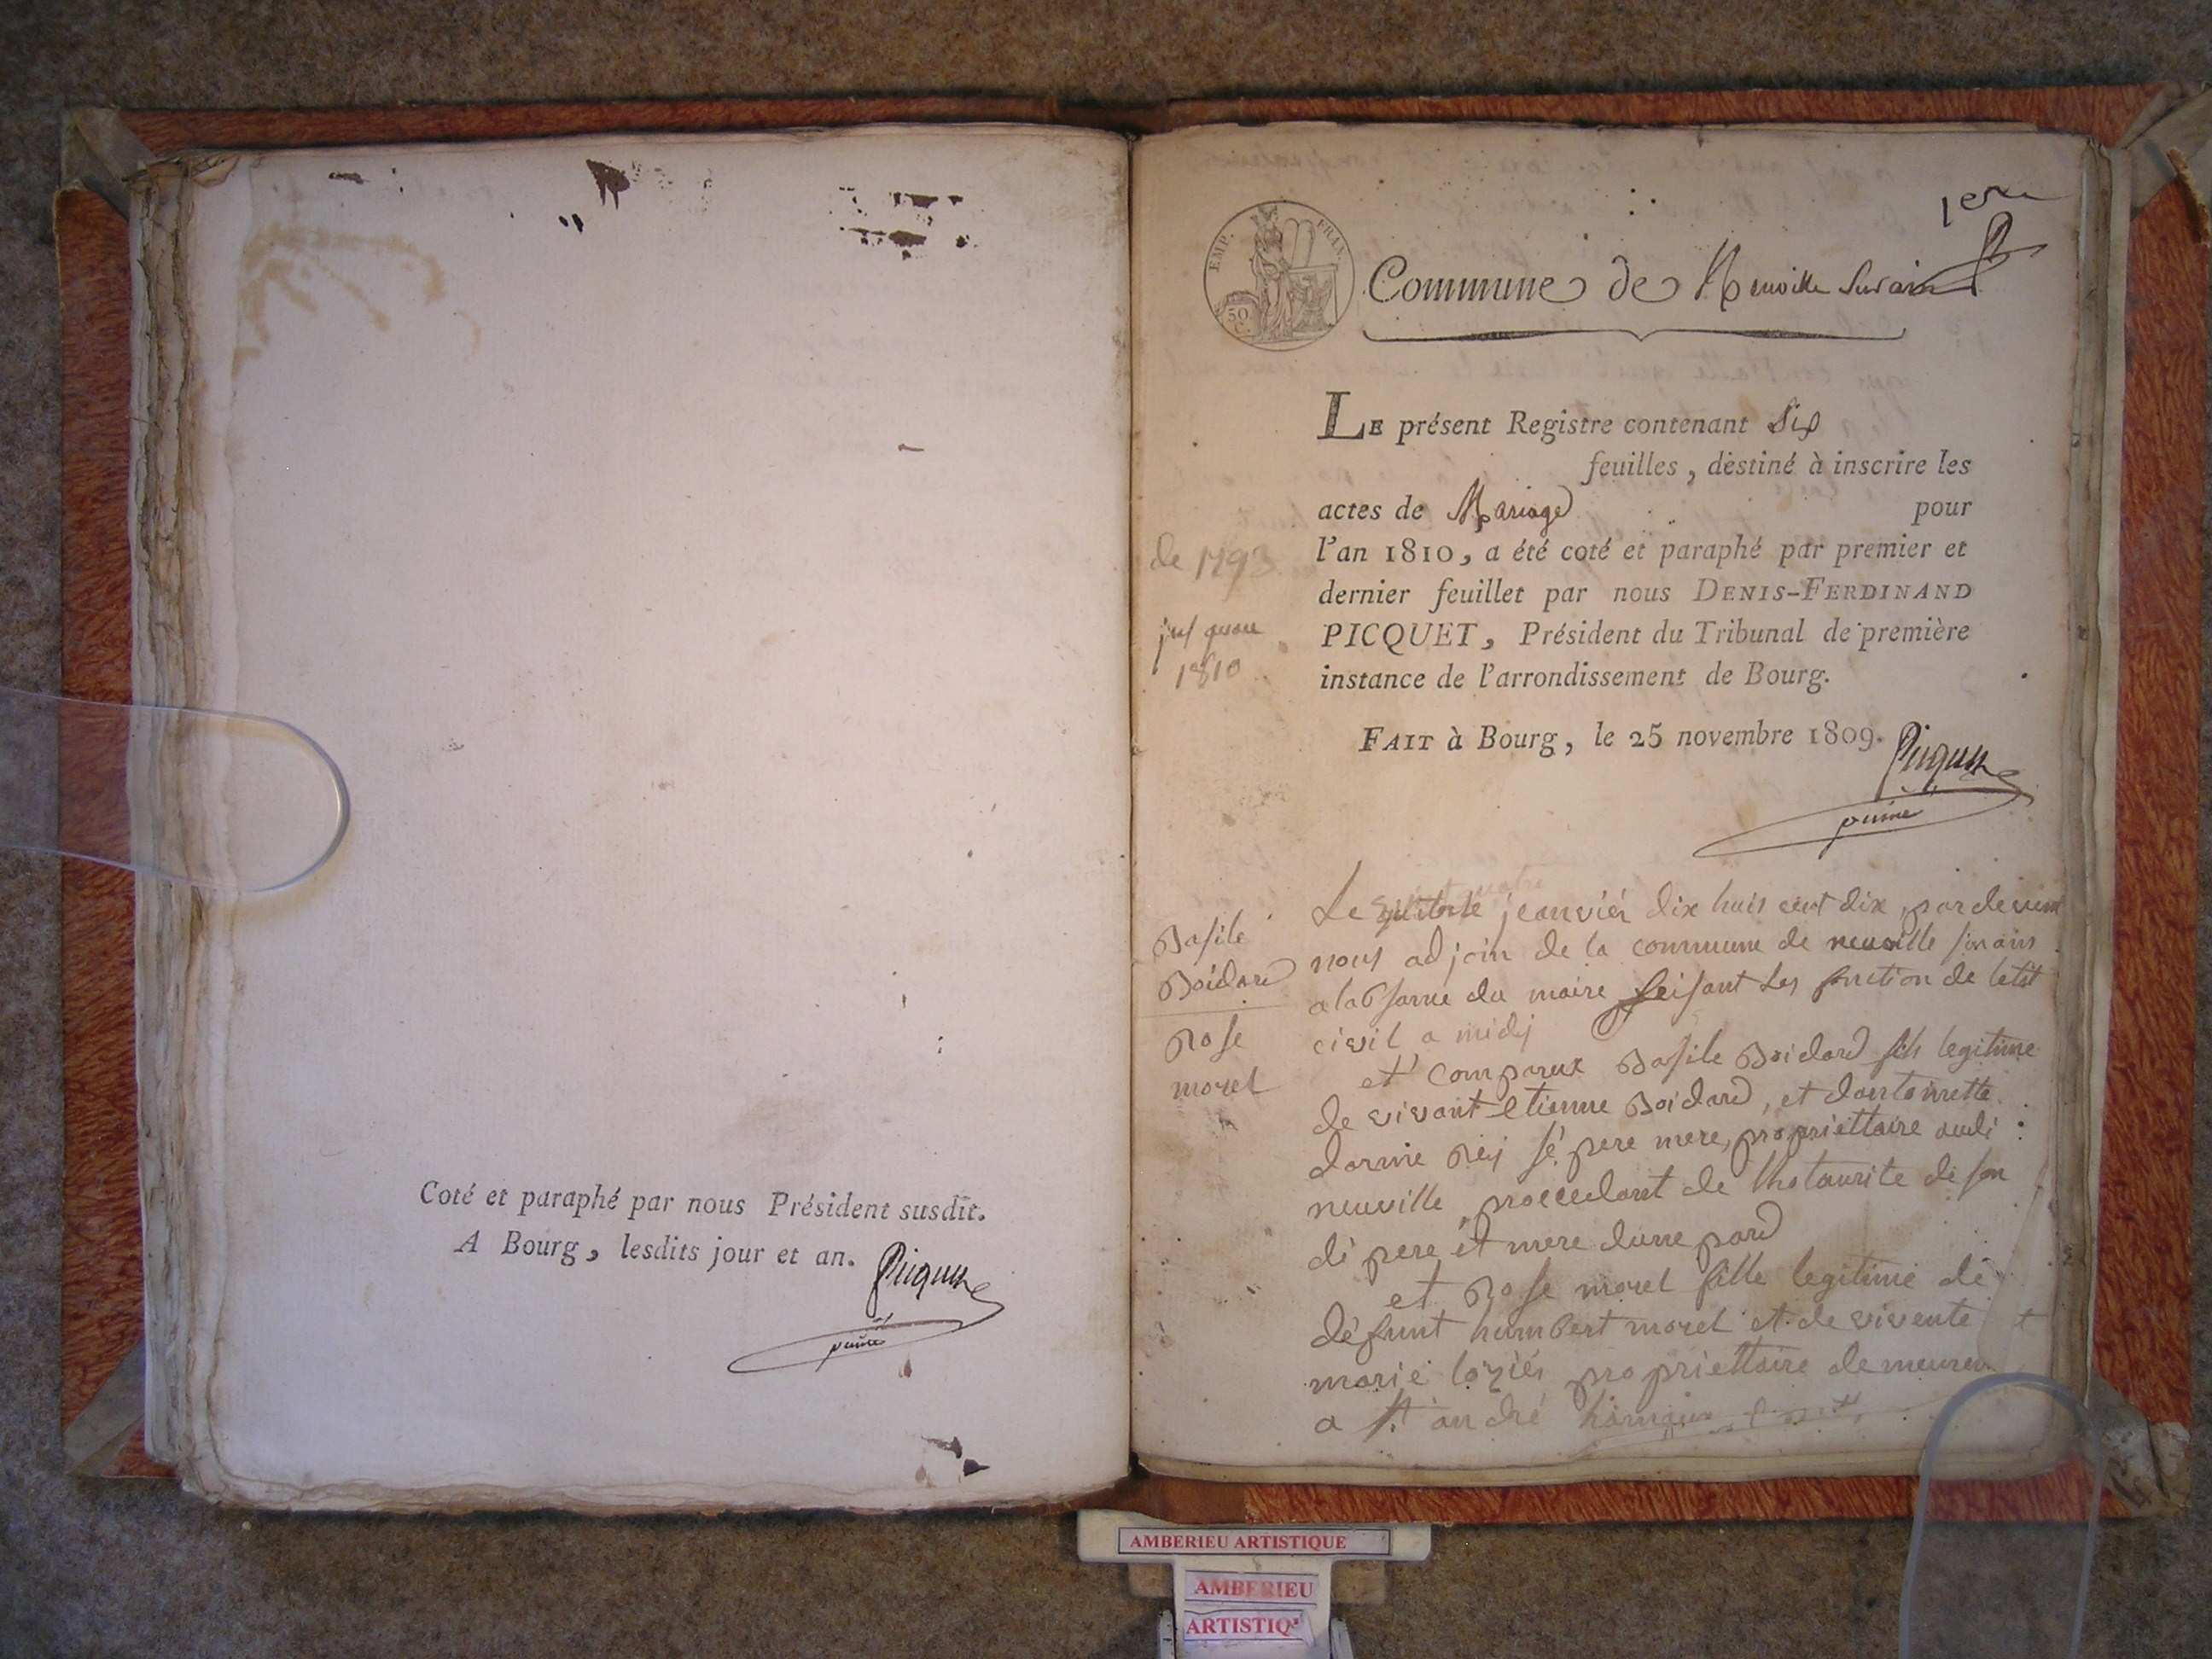 Coté et paraphé par nous Président susdit.
A Bourg, lesdits jour et an.
Picquet
1ere
EMP. FRAN.
50
C.
Commune de Neuville Sur ain
LE présent Registre contenant Six
feuilles, destiné à inscrire les
actes de Mariage pour
l'an 1810, a été coté et paraphé par premier et
dernier feuillet par nous DENIS-FERDINAND
PICQUET, Président du Tribunal de première
instance de l'arrondissement de Bourg.
FAIT à Bourg, le 25 novembre 1809.
Picquet
de 1793
jusquau
1810
Basile
Boidard
Rose
morel
Le jeanvier dix huis cent dix, par devent
nous adjoin de la commune de neuville sur ains
a labsame du maire feisant les fonction de letat
civil a midj
et comparux Basile Boidard fils legitime
de vivant etienne Boidard, et dantoinette
dormie Rey sé pere mere, propriettaire audi
neuville, proccedant de lhotaurite de son
di pere et mere dune pard
et Rose morel fille legitime de
défunt humbert morel et de vivente
marie loziér propriettaire demeuren
a st andré
AMBERIEU ARTISTIQUE
AMBERIEU
ARTISTIQ